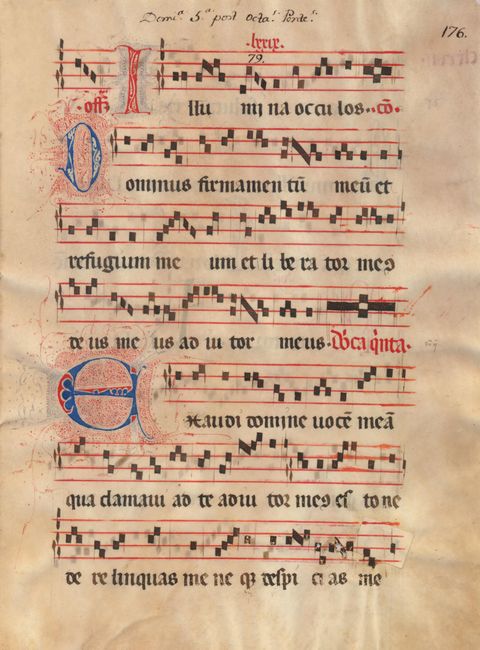 Domi.ᵃ 5.ᵃ post octa.ˢ Pente.ˢ
176.
·lxxix·
79.
·offꝫ I llu mi na occu los · co̅ ·
D ominus firmamen tū meū et
refugium me um et li be ra tor me9
de us me us ad iu tor me us · Dn̅ica qu̍nta ·
E xaudi domine uocē meā
qua clamaui ad te adiu tor me9 es to ne
de re linquas me ne qꝫ despi ci as me